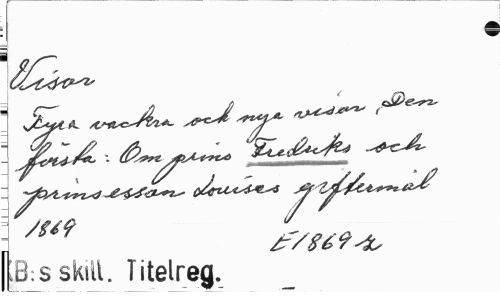 Visor
Fyra vackra och nya visor, Den
första: Om prins Fredriks och
prinsessan Louises giftermål
1869
E1869
KB:s skill. Titelreg.